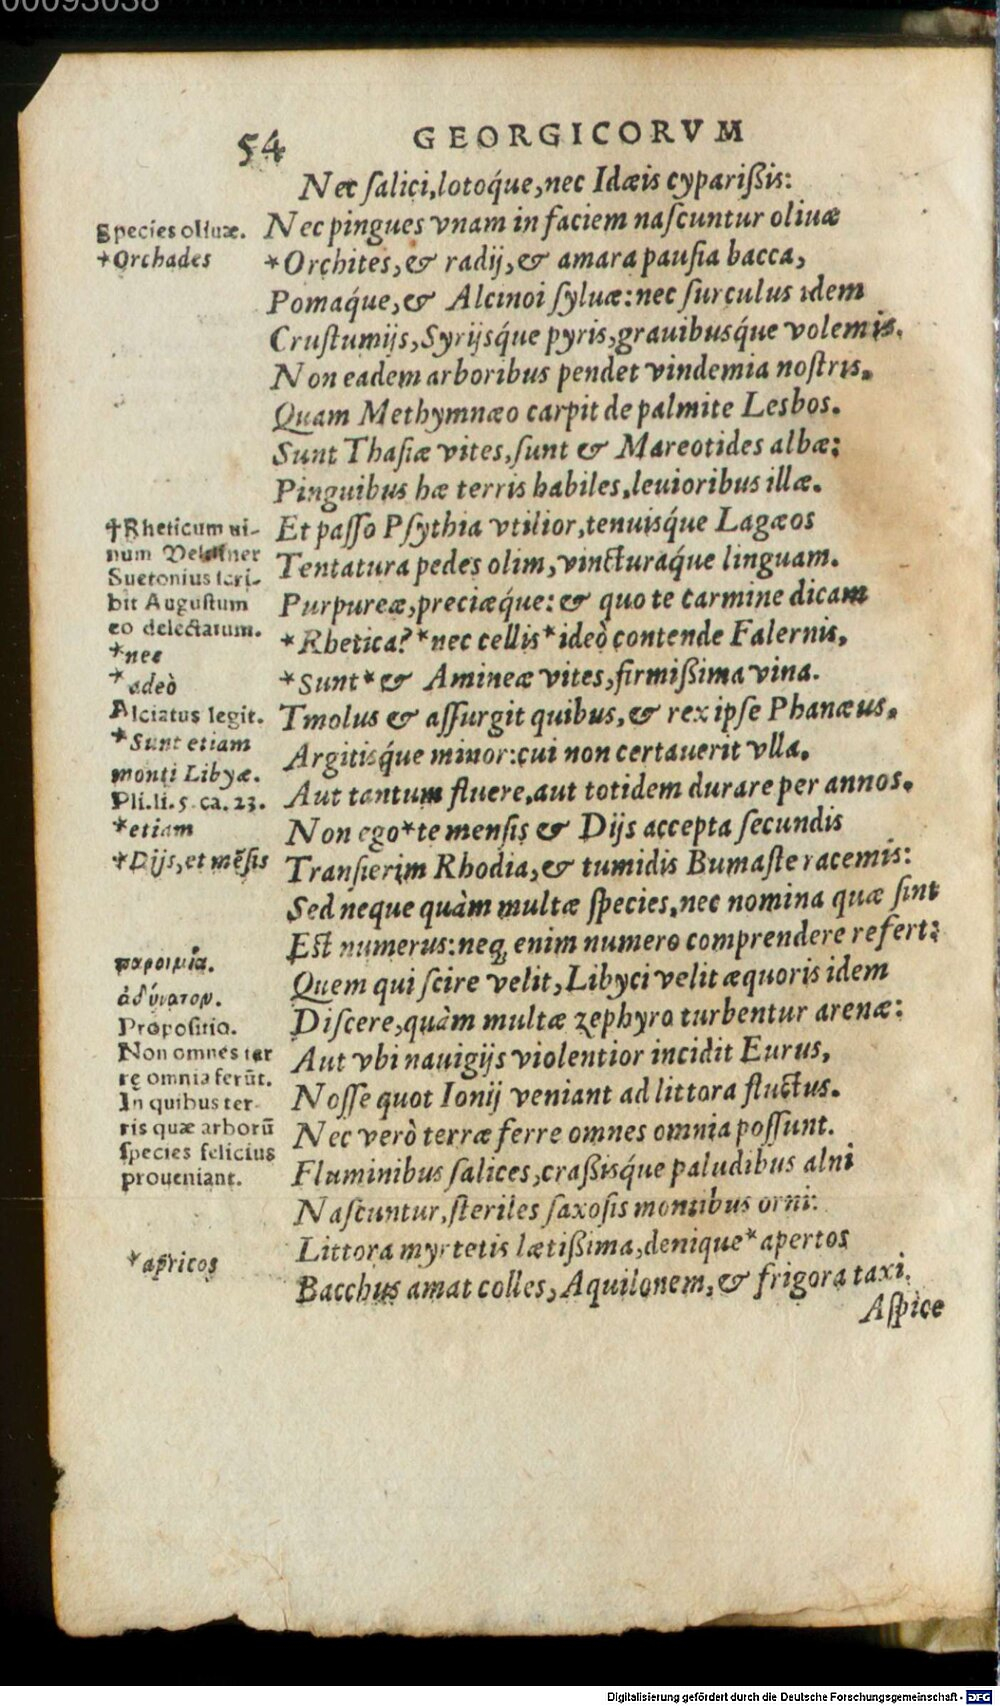 00093038
54 GEORGICORVM
Nec ſalici, lotoq́ue, nec Idæis cypariſsis:
Nec pingues vnam in faciem naſcuntur oliuæ
*Orchites, & radij, & amara pauſia bacca,
Pomaq́ue, & Alcinoi ſyluæ: nec ſurculus idem
Cruſtumijs, Syrijsq́ue pyris, grauibusq́ue volemis.
Non eadem arboribus pendet vindemia noſtris.
Quam Methymnæo carpit de palmite Lesbos.
Sunt Thaſiæ vites, ſunt & Mareotides albæ:
Pinguibus hæ terris habiles, leuioribus illæ.
Et paſſo Pſythia vtilior, tenuisq́ue Lagæos
Tentatura pedes olim, vincturaq́ue linguam.
Purpureæ, preciæq́ue: & quo te carmine dicam
*Rhetica? *nec cellis *ideò contende Falernis,
*Sunt* & Amineæ vites, firmiſsima vina.
Tmolus & aſſurgit quibus, & rex ipſe Phanæus.
Argitisq́ue minor: cui non certauerit vlla.
Aut tantum fluere, aut totidem durare per annos.
Non ego *te menſis & Dijs accepta ſecundis
Tranſierim Rhodia, & tumidis Bumaſte racemis:
Sed neque quàm multæ ſpecies, nec nomina quæ ſint
Eſt numerus: neq; enim numero comprendere refert:
Quem qui ſcire velit, Libyci velit æquoris idem
Diſcere, quàm multæ zephyro turbentur arenæ:
Aut vbi nauigijs violentior incidit Eurus,
Noſſe quot Ionij veniant ad littora fluctus.
Nec verò terræ ferre omnes omnia poſſunt.
Fluminibus ſalices, craſsisq́ue paludibus alni
Naſcuntur, ſteriles ſaxoſis montibus orni:
Littora myrtetis lætiſsima, denique *apertos
Bacchus amat colles, Aquilonem, & frigora taxi.
Aſpice
Species oliuæ.
*Orchades
✝Rheticum ui-
num
Suetonius ſcri-
bit Auguſtum
eo delectatum.
*nec
*adeò
Alciatus legit.
*Sunt etiam
monti Libyæ.
Pli. li. 5. ca. 23.
*etiam
*Dijs, et mēſis
παροιμία.
ἀδύνατον.
Propoſitio.
Non omnes ter
rę omnia ferūt.
In quibus ter-
ris quæ arborū
ſpecies felicius
proueniant.
*apricos
Digitalisierung gefördert durch die Deutsche Forschungsgemeinschaft - DFG